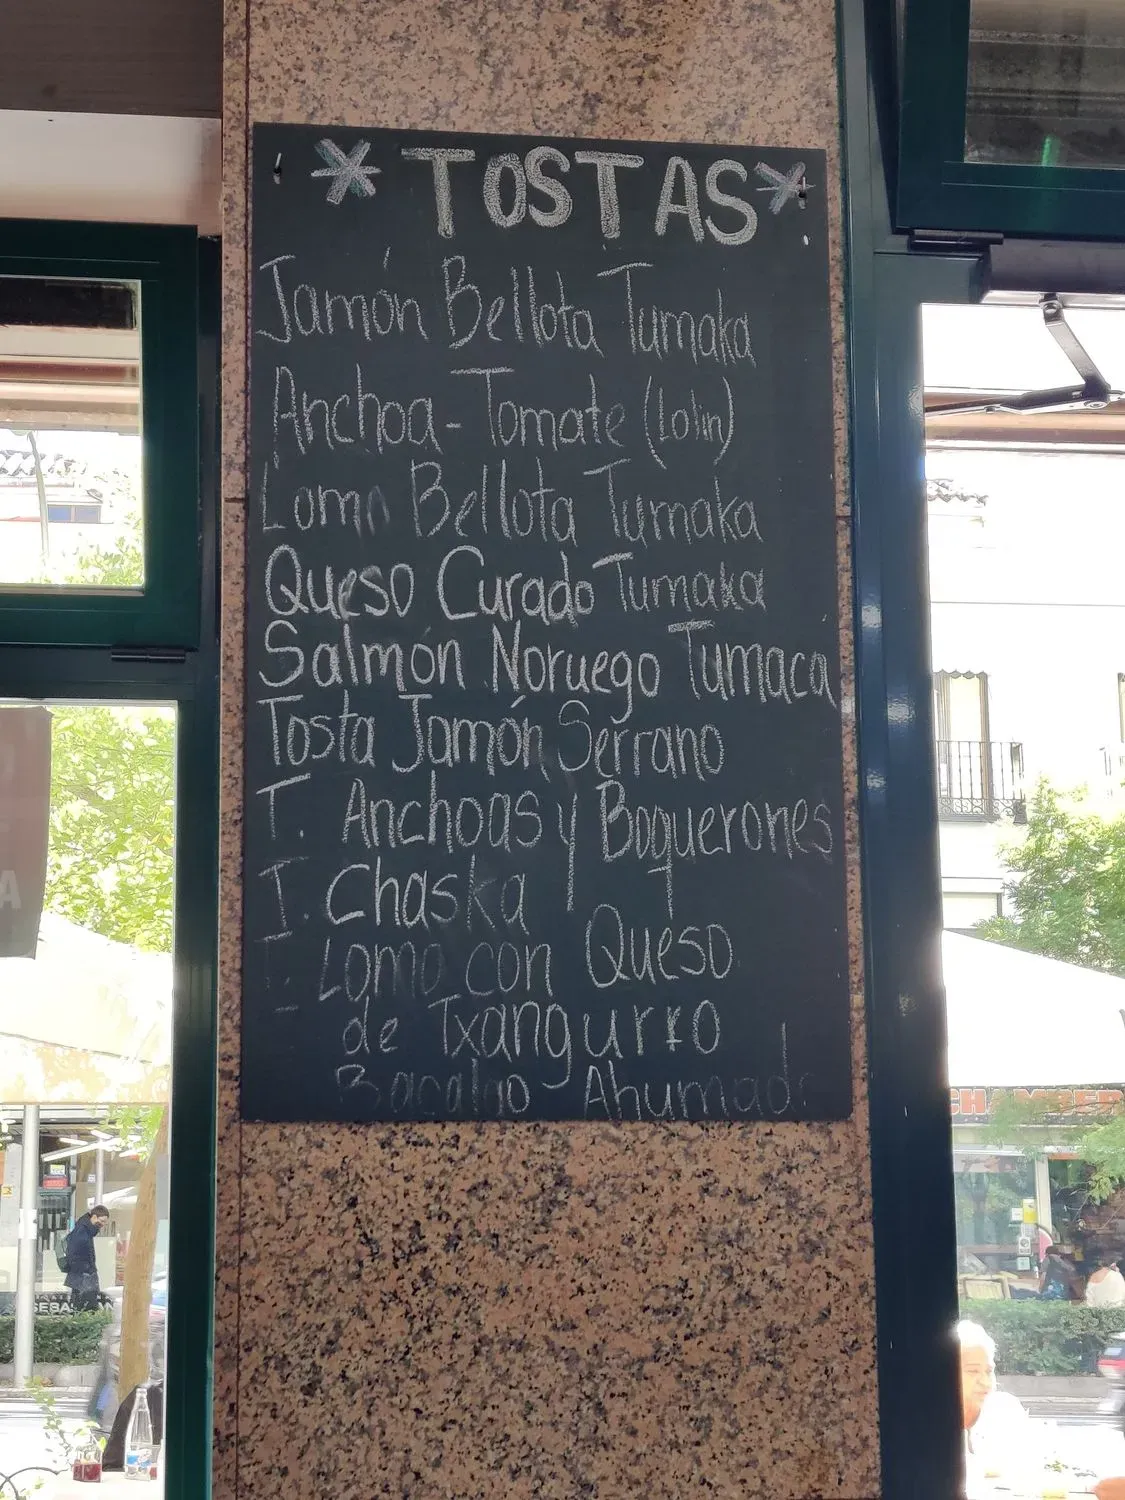 * TOSTAS *
Jamón Bellota Tumaka
Anchoa - Tomate (Lolin)
Lomo Bellota Tumaka
Queso Curado Tumaka
Salmón Noruego Tumaca
Tosta Jamón Serrano
T. Anchoas y Boquerones
T. Chaska
T. Lomo con Queso
de Txangurro
Bacalao Ahumado
CHAMBER